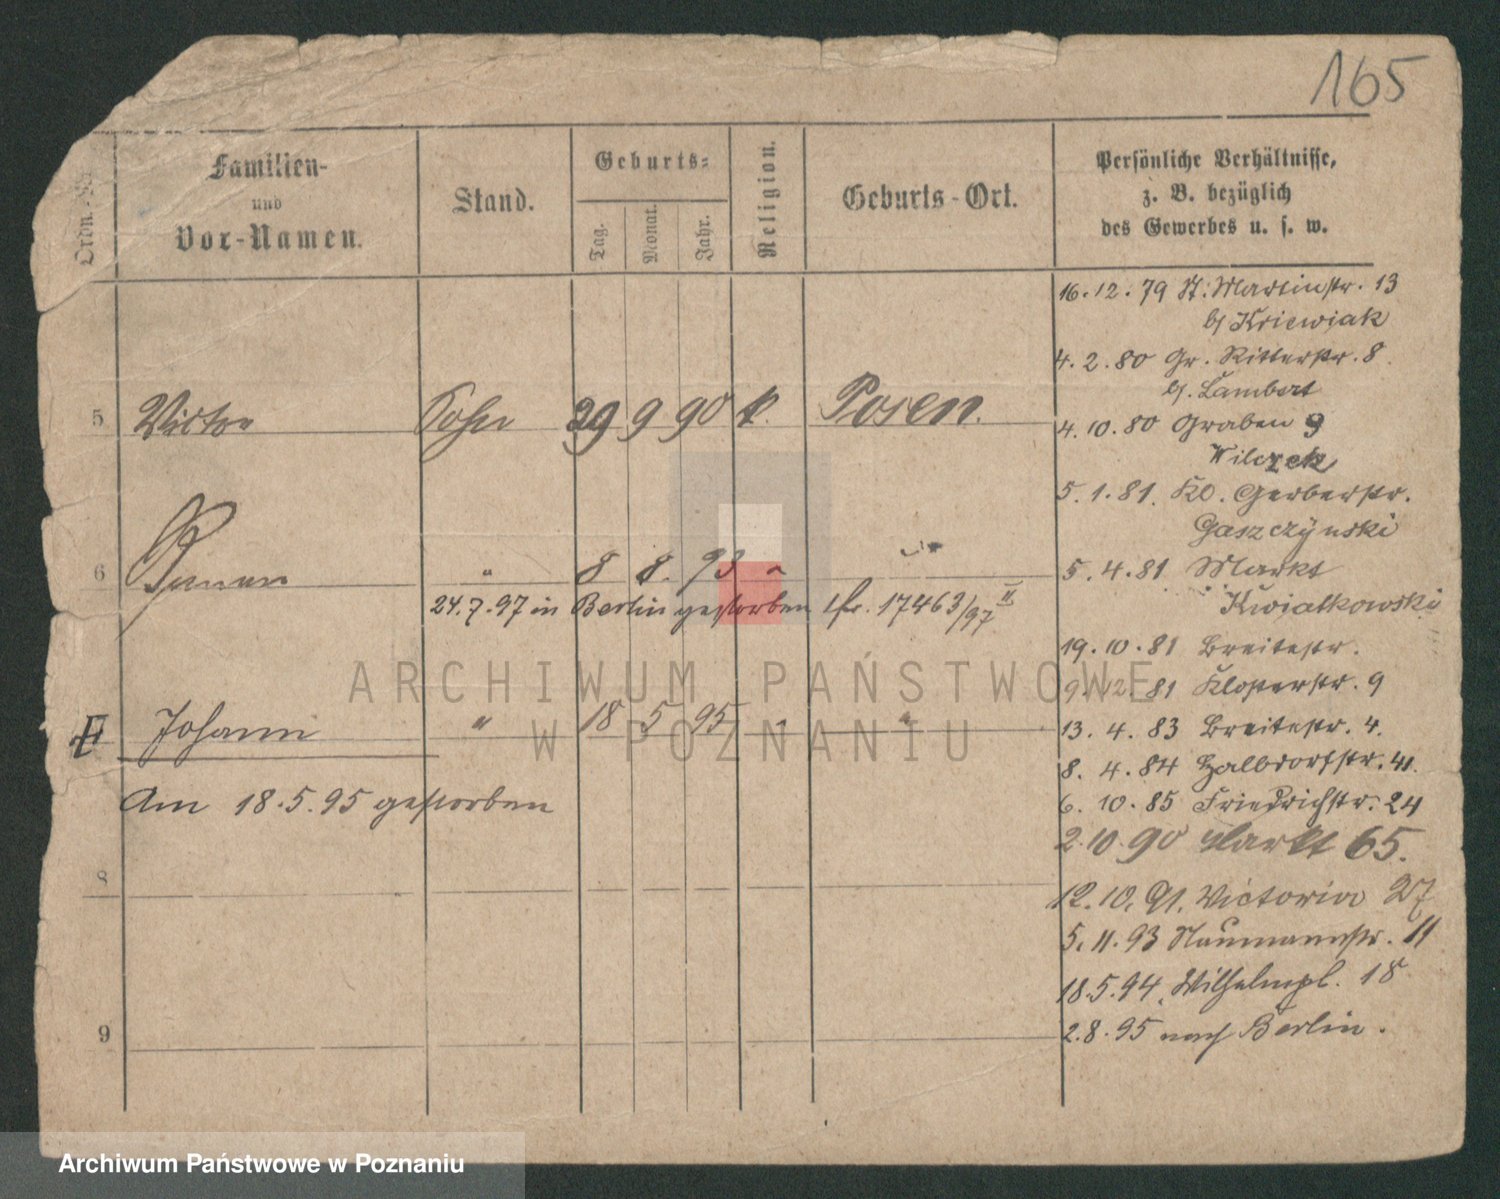 165
Ordn.-Nr.
Familien-
und
Vor-Namen.
Stand.
Geburts-
Tag.
Monat.
Jahr.
Religion.
Geburts-Ort.
Persönliche Verhältnisse,
z. B. bezüglich
des Gewerbes u. s. w.
5 Victor Sohn 29 9 90 k. Posen.
6 " 8 8. 93 " "
24.7.97 in Berlin gestorben 17463/97 II
Johann " 18 5 95 " "
Am 18.5.95 gestorben
8
9
16.12.79 St. Martinstr. 13
b/ Kriewiak
4.2.80 Gr. Ritterstr. 8
b/. Lambert
4.10.80 Graben 9
Wilczek
5.1.81. Kl. Gerberstr.
Gaszczynski
5.4.81 Markt
Kwiatkowski
19.10.81 Breitestr.
9.12.81 Klosterstr. 9
13.4.83 Breitestr. 4.
8.4.84 Halbdorfstr. 41.
6.10.85 Friedrichstr. 24
2.10.90 Markt 65.
12.10.91. Victoria 27
5.11.93 Naumannstr. 11
18.5.94. Wilhelmpl. 18
2.8.95 nach Berlin.
ARCHIWUM PAŃSTWOWE
W POZNANIU
Archiwum Państwowe w Poznaniu